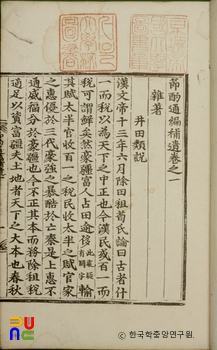 節酌通編補遺卷之一
雜著
井田類說
漢文帝十三年六月除田租荀氏論曰古者什
一而稅以爲天下之中正也今漢民或百一而
稅可謂鮮矣然豪疆富人占田逾侈輸
其賦太半官收百一之稅民收太半之賦官家
之惠優於三代豪強之暴酷於亡秦是上惠不
通威福分於豪疆也今不正其本而務除租稅
適足以資富疆夫土地者天下之大本也春秋
한국학중앙연구원